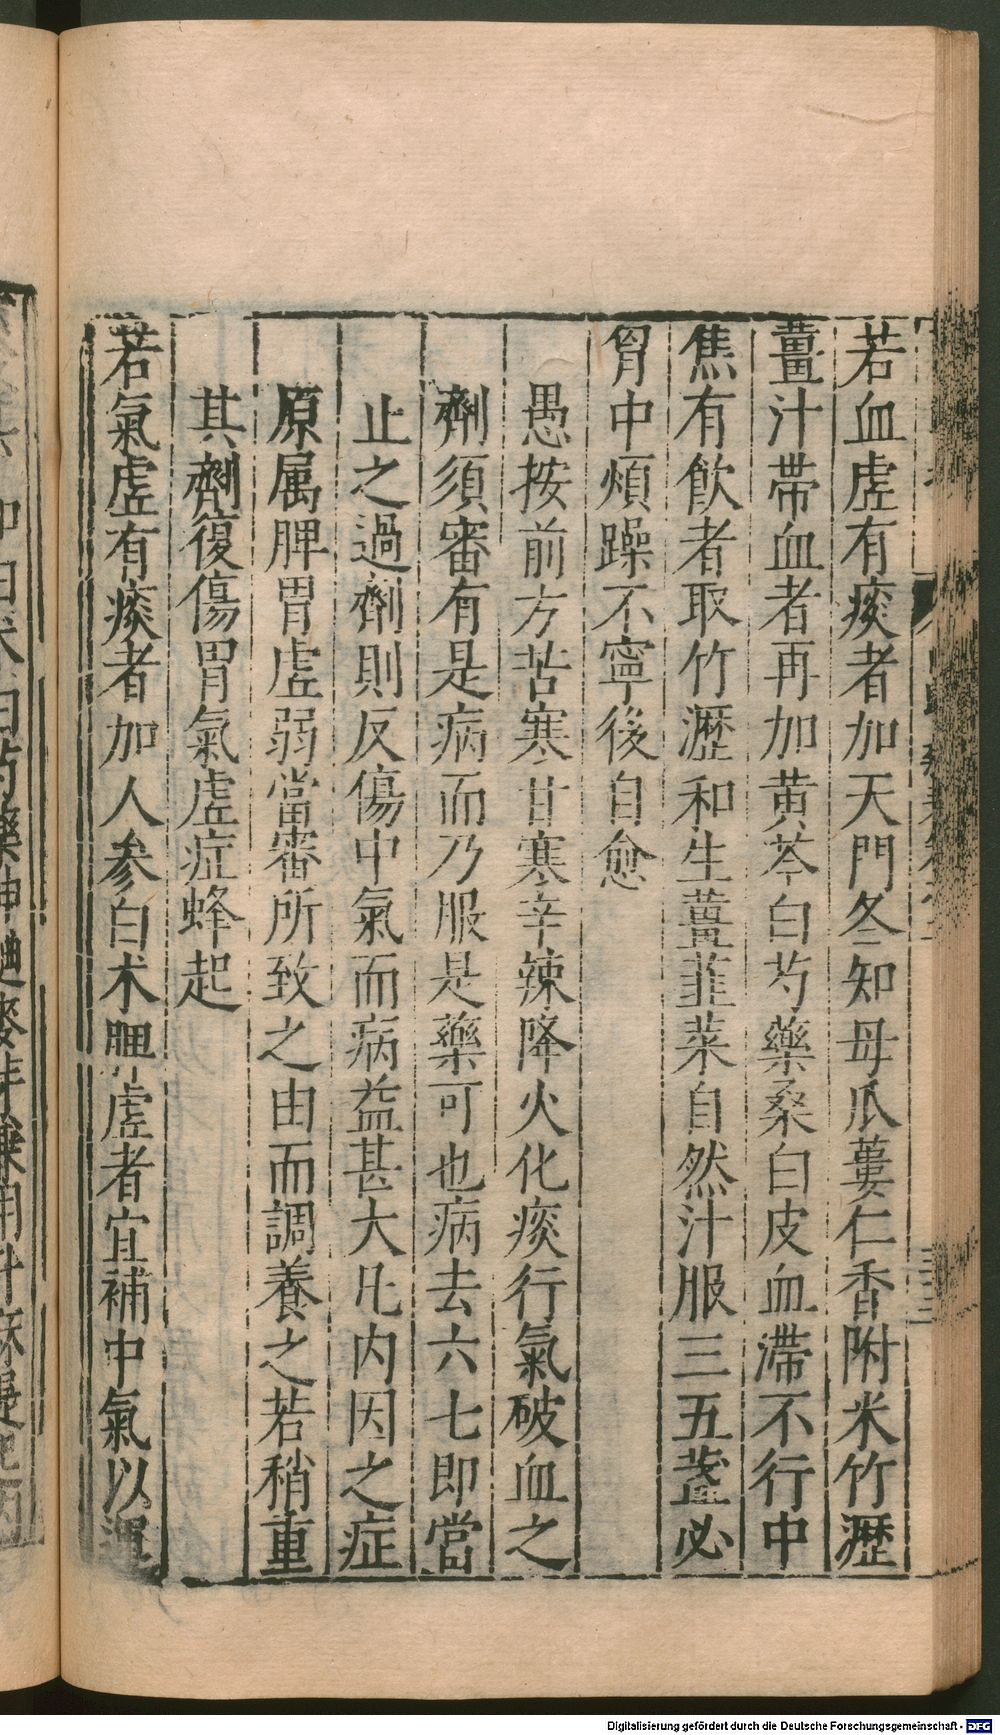 若血虛有痰者加天門冬知母瓜蔞仁香附米竹瀝
薑汁帶血者再加黄芩白芍藥桑白皮血滯不行中
焦有飲者取竹瀝和生薑韮菜自然汁服三五盞必
胷中煩躁不寧後自愈
愚按前方苦寒甘寒辛辣降火化痰行氣破血之
劑須審有是病而乃服是藥可也病去六七即當
止之過劑則反傷中氣而病益甚大凢内因之症
原属脾胃虛弱當審所致之由而調養之若稍重
其劑復傷胃氣虛症蜂起
若氣虛有痰者加人參白术脾虛者宜補中氣以
Digitalisierung gefördert durch die Deutsche Forschungsgemeinschaft - DFG